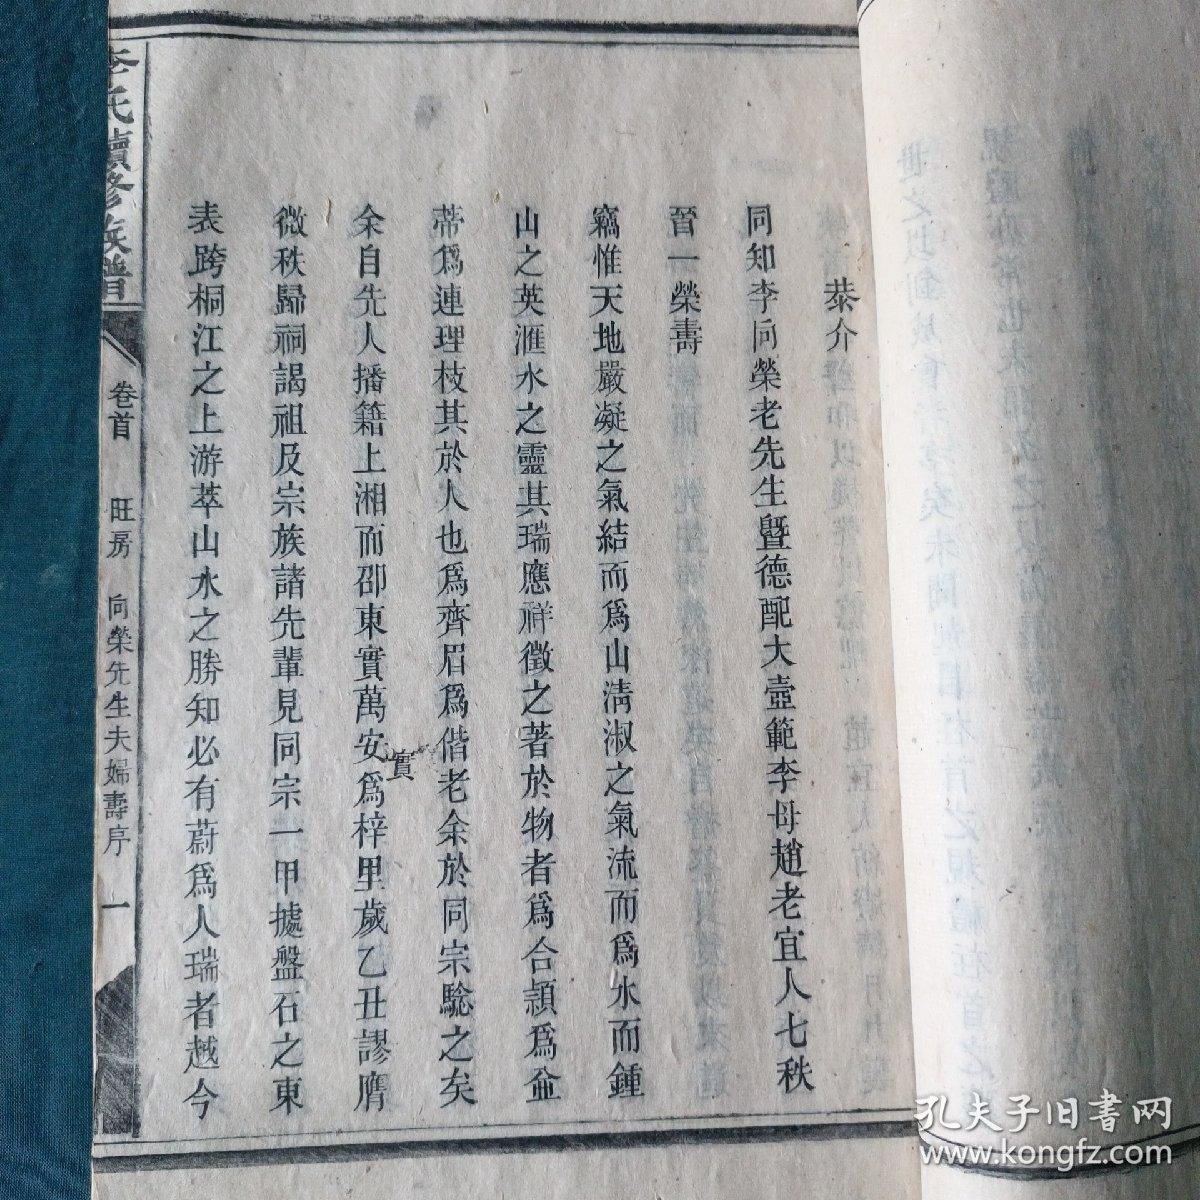 恭介
同知李向榮老先生曁德配大壼範李母趙老宜人七秩
晉一榮壽
竊惟天地嚴凝之氣結而爲山淸淑之氣流而爲水而鍾
山之英滙水之靈其瑞應祥徵之著於物者爲合頴爲並
蒂爲連理枝其於人也爲齊眉爲偕老余於同宗騐之矣
余自先人播籍上湘而邵東實萬安爲梓里歲乙丑謬膺
實
微秩歸祠謁祖及宗族諸先輩見同宗一甲據盤石之東
表跨桐江之上游萃山水之勝知必有蔚爲人瑞者越今
李氏續修族譜
卷首
旺房
向榮先生夫婦壽序
一
孔夫子旧書网
www.kongfz.com